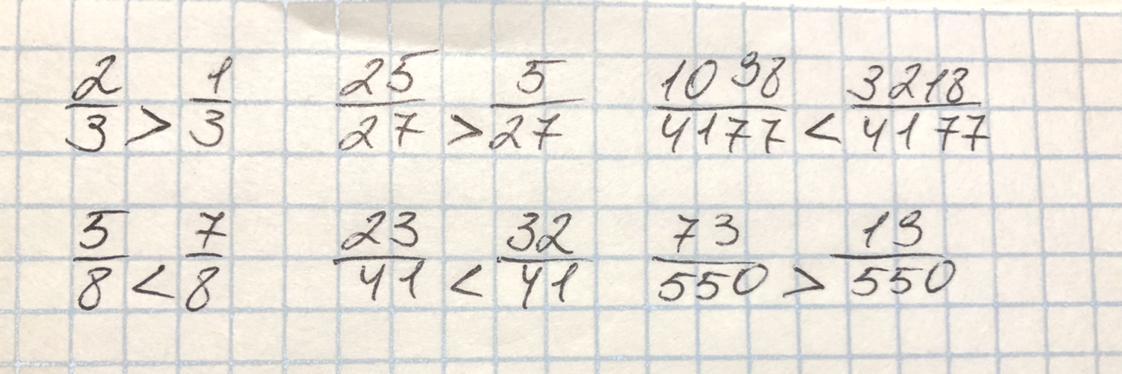 2/3 > 1/3 25/27 > 5/27 1098/4177 < 3218/4177
5/8 < 7/8 23/41 < 32/41 73/550 > 19/550